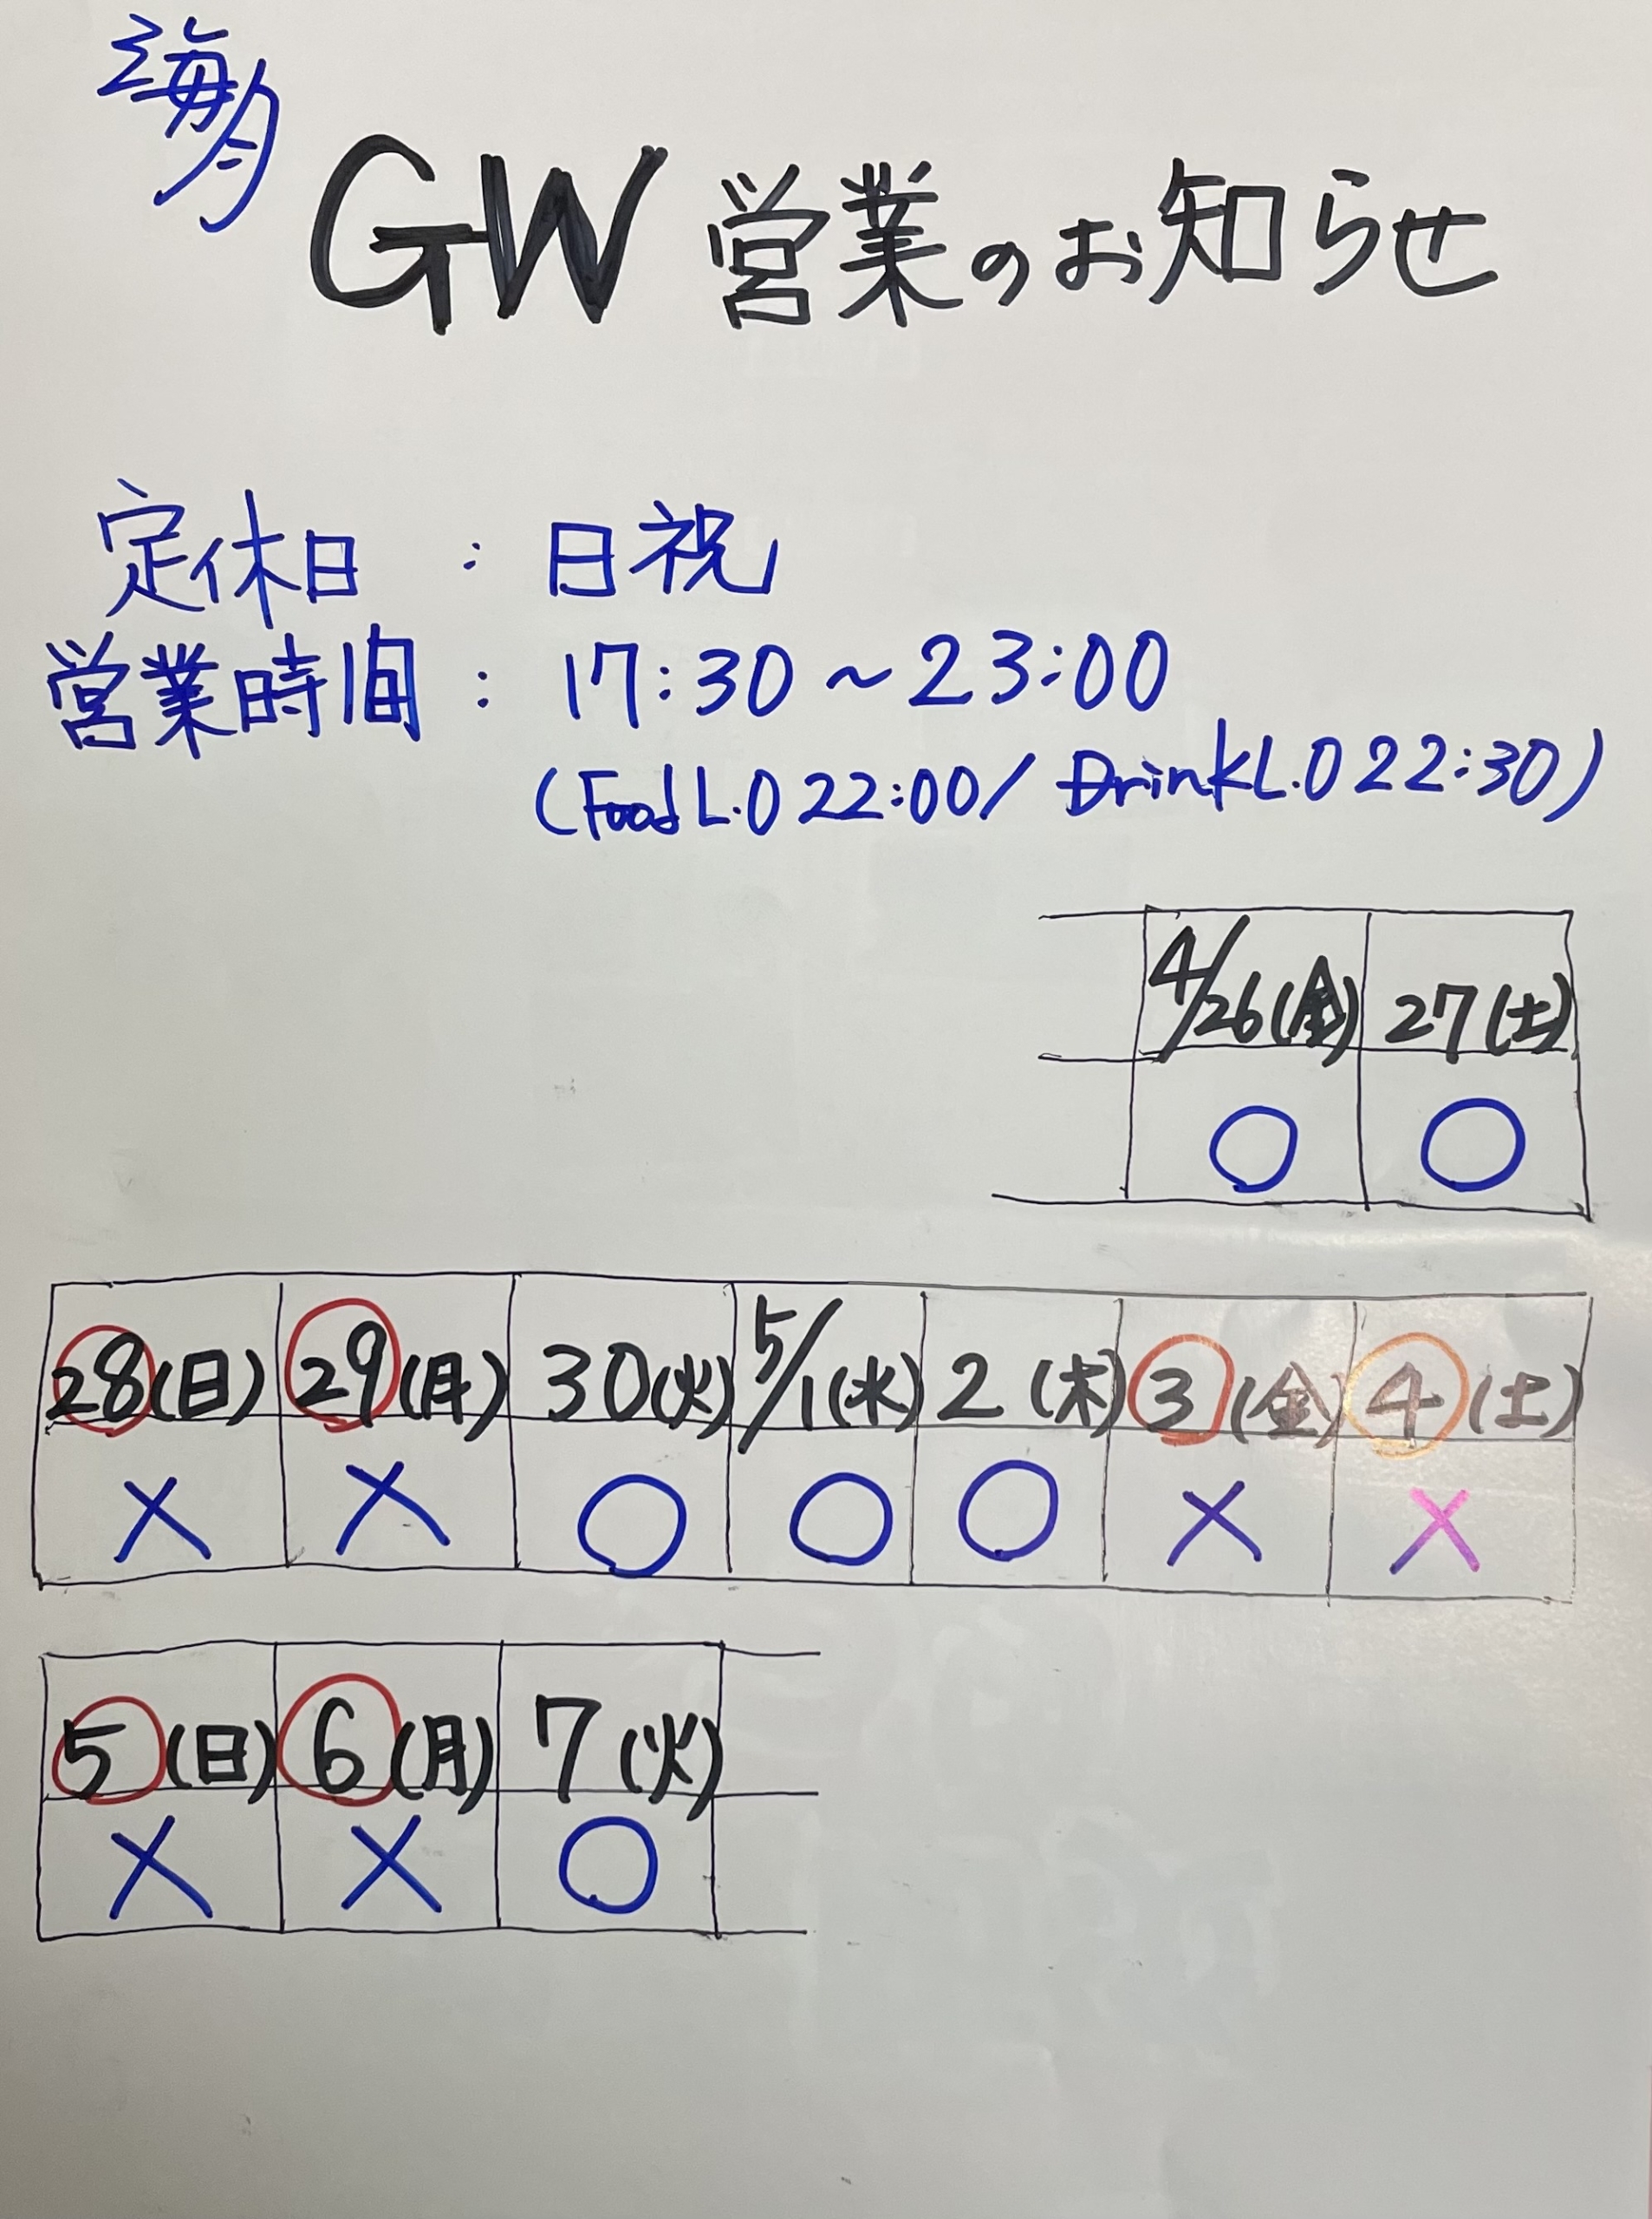 海月
GW 営業のお知らせ
定休日 : 日祝
営業時間 : 17:30~23:00
(Food L.O 22:00/ Drink L.O 22:30)
4/26(金) 27(土)
○ ○
28(日) 29(月) 30(火) 5/1(水) 2(木) 3(金) 4(土)
× × ○ ○ ○ × ×
5(日) 6(月) 7(火)
× × ○